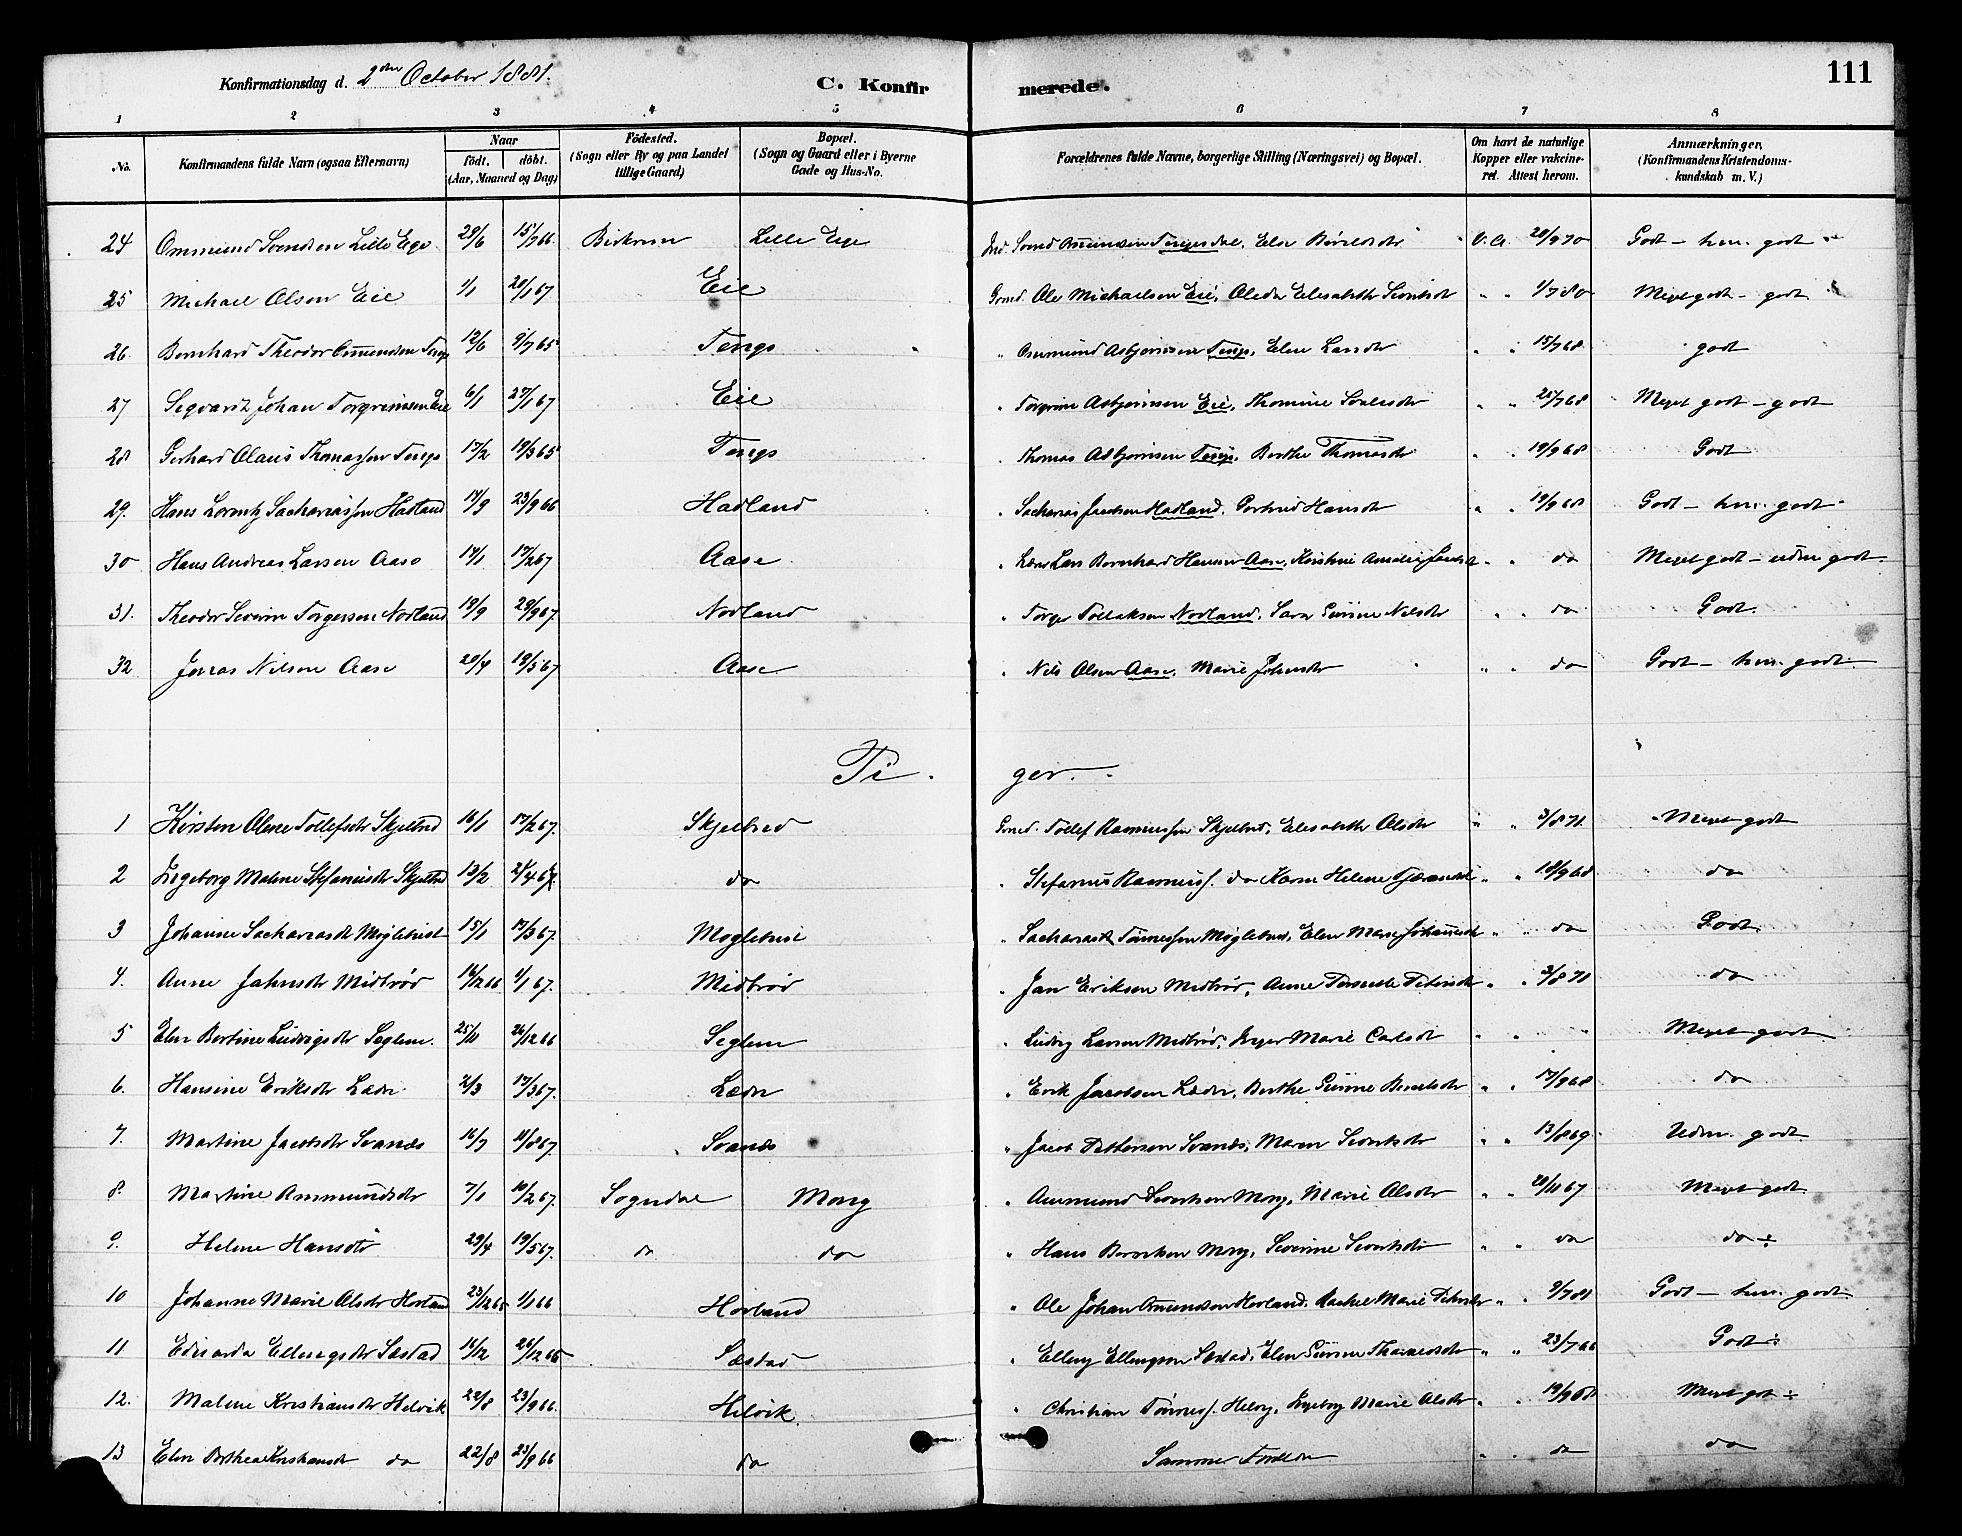 Konfirmationsdag d. 2den October 1881.
C. Konfir merede. 111
1 2 3 4 5 6 7 8
No. Konfirmandens fulde Navn (ogsaa Efternavn) Naar födt. döbt. (Aar, Maaned og Dag) Födested. (Sogn eller By og paa Landet tillige Gaard) Bopæl. (Sogn og Gaard eller i Byerne Gade og Hus-No. Forældrenes fulde Navne, borgerlige Stilling (Næringsvei) og Bopæl. Om havt de naturlige Kopper eller vakcineret. Attest herom. Anmærkninger, (Konfirmandens Kristendomskundskab m. V.)
24 Ommund Svendsen Lille Ege 29/6 15/7 66 Birkrem Lille Ege Svend Tengesdal, Elen V. A. 20/9 70 Godt - hen. godt
25 Michael Olsen Eie 1/1 20/1 67 Eie Gmd. Ole Michaelsen Eie, Elisabeth Sivertsdr " " 1/7 80 Meget godt - godt
26. Bernhard Theodor Omundsen Tengs 12/6 9/7 65 Tengs " Ommund Asbjørnsen Tengs, Elen Larsdr " " 15/7 68 godt
27 Seqvartz Johan Torgrimsen Eie 6/1 27/1 67 Eie " Torgrim Asbjørnsen Eie, Thomine " " 25/7 68 Meget godt - godt
28 Gerhard Olaus Thomassen Tengs 17/2 19/3 65 Tengs " Thomas Asbjørnsen Tengs, Berthe Thomasdr " " 19/9 68 Godt
29. Hans Lorentz Sachariassen Hadland 14/9 23/9 66 Hadland " Sacharias Jacobsen Hadland, Gertrud Hansdr " " 19/9 68 Godt - hen. godt
30 Hans Andreas Larsen Aase 14/1 17/2 67 Aase " Lars Bernhard Hansen Aase, Kristine Amalie " " do Meget godt - udm. godt.
31. Theodor Severin Torgersen Nodland 19/9 29/9 67. Nodland " Torger Tollaksen Nodland, Sara Gurine Nilsdr " " do Godt.
32 Jonas Nilsen Aase 20/4 19/5 67 Aase " Nils Olsen Aase, Marie Johnsdr " " do Godt - hen. godt
Pi. ger.
1 Kirsten Olene Tollefsdr Skjelbred 16/1 17/2 67. Skjelbred Gmd. Tollef Rasmussen Skjelbred, Elisabeth Olsdr " " 3/8 71. Meget godt
2 Ingeborg Malene Stefanusdr Skjelbred 13/2 21/4 67. do " Stefanus Rasmuss. do Karen Helene " " 18/9 68 do
3 Johanne Sachariasdr Møglebust 15/1 17/3 67. Møglebust " Sacharias Tønnessen Møglebust, Elen Marie " " do Godt.
4. Anne Jahnsdr Midbrød 16/12 66 1/1 67. Midbrød " Jan Eriksen Midbrød, Anne " " 3/8 71 do
5 Elen Bertine Ludvigsdr Seglem. 25/11 26/12 66 Seglem " Ludvig Larsen Midbrød, Inger Marie Carlsdr " " " Meget godt
6. Hansine Eriksdr Lædre 2/3 17/3 67. Lædre " Erik Jacobsen Lædre, Berthe Gurine " " 17/9 68 do
7. Martine Jacobsdr Svanæs 16/7 11/8 67. Svanæs " Jacob Pettersen Svanæs, Maren Sivertsdr " " 13/8 69. Udm. godt
8. Martine Ammundsdr 7/1 10/2 67. Sogndal Mong " Ammund Sivertsen Mong, Marie Olsdr " " 20/11 67 Meget godt.
9. Helene Hansdr 29/4 19/5 67. do do " Hans Berntsen Mong, Severine Sivertsdr " " do do ÷
10 Johanne Marie Olsdr Hovland 23/12 65 1/1 66 Hovland " Ole Johan Omundsen Hovland, Rachel Marie " " 9/7 81 Godt - hen. godt
11 Eduarda Ellingsdr Sæstad 16/2 26/12 65 Sæstad " Elling Ellingsen Sæstad, Elen Gurine " " 23/7 66 Godt ÷
12. Malene Kristiansdr Helvik 22/8 23/9 66. Helvik. " Christian Tønness. Helvig, Ingeborg Marie Olsdr " " 19/9 68 Meget godt ÷
13 Elen Berthea Kristiansdr do 22/8 23/9 66 do Samme Forældre " do do